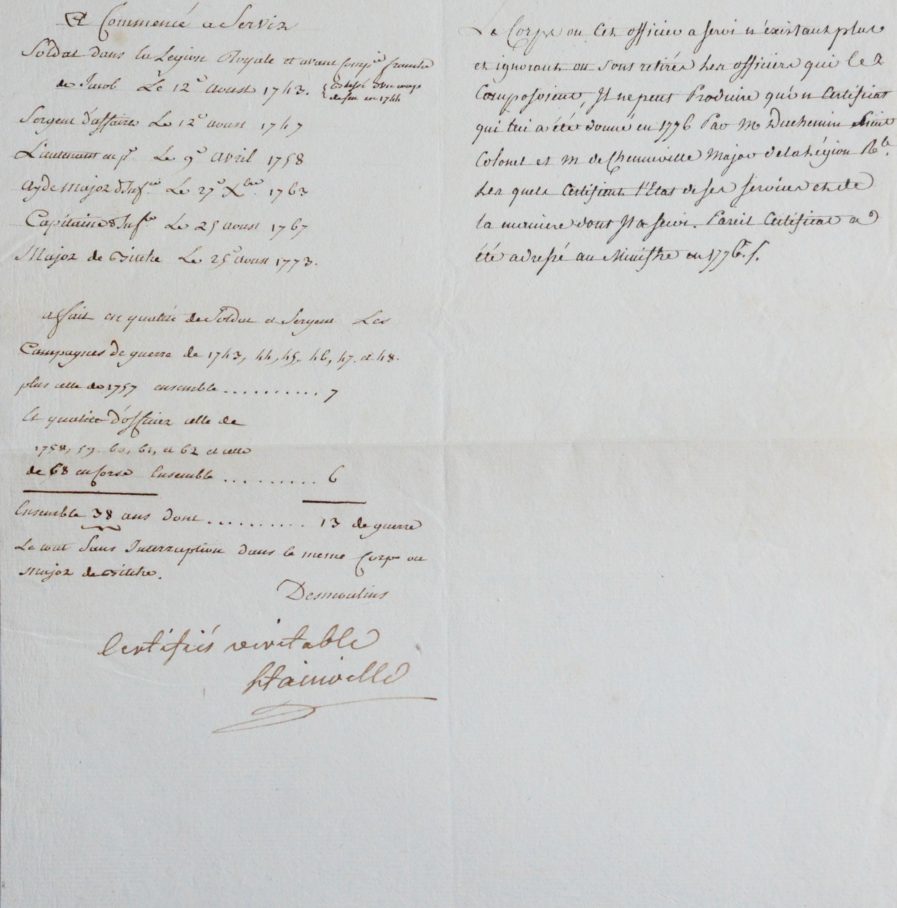 A Commencé a Servir
Soldat dans la Légion Royale et avant Comp.ie franche
de Jacob Le 12.e aoust 1743.
de feu en 1744
Sergent d'affaire Le 12.e aoust 1747
Lieutenant en p.r Le 9.e avril 1758
ayde Major d'Inf.rie Le 27.e Xbre 1763
Capitaine d'Inf.rie Le 25 aoust 1767
Major de Bitche Le 25.e aoust 1773.
a fait en qualité de Soldat et Sergent Les
Campagnes de guerre de 1743, 44, 45, 46, 47. et 48.
plus celle de 1757 ensemble .......... 7
et qualité d'officier celle de
1758, 59. 60, 61, et 62 et celle
de 68 en Corse Ensemble .......... 6
Ensemble 38 ans dont .......... 13 de guerre
Le tout Sans Interruption dans le meme Corps ou
Major de Bitche.
Desmoulins
Certifiés véritable
Stainville
Le Corps ou Cet officier a servi n'éxistant plus
et ignorant ou sont retirés Les officiers qui le
Composoient, Il ne peut Produire qu'un Certificat
qui lui a été donné en 1776 Par M. Duchemin Lieut
Colonel et M. de Chenneville Major de la Légion R.le
Les quels Certifient l'Etat de ses services et de
la maniere dont Il a servi. Pareil Certificat a
été adressé au Ministre en 1776.